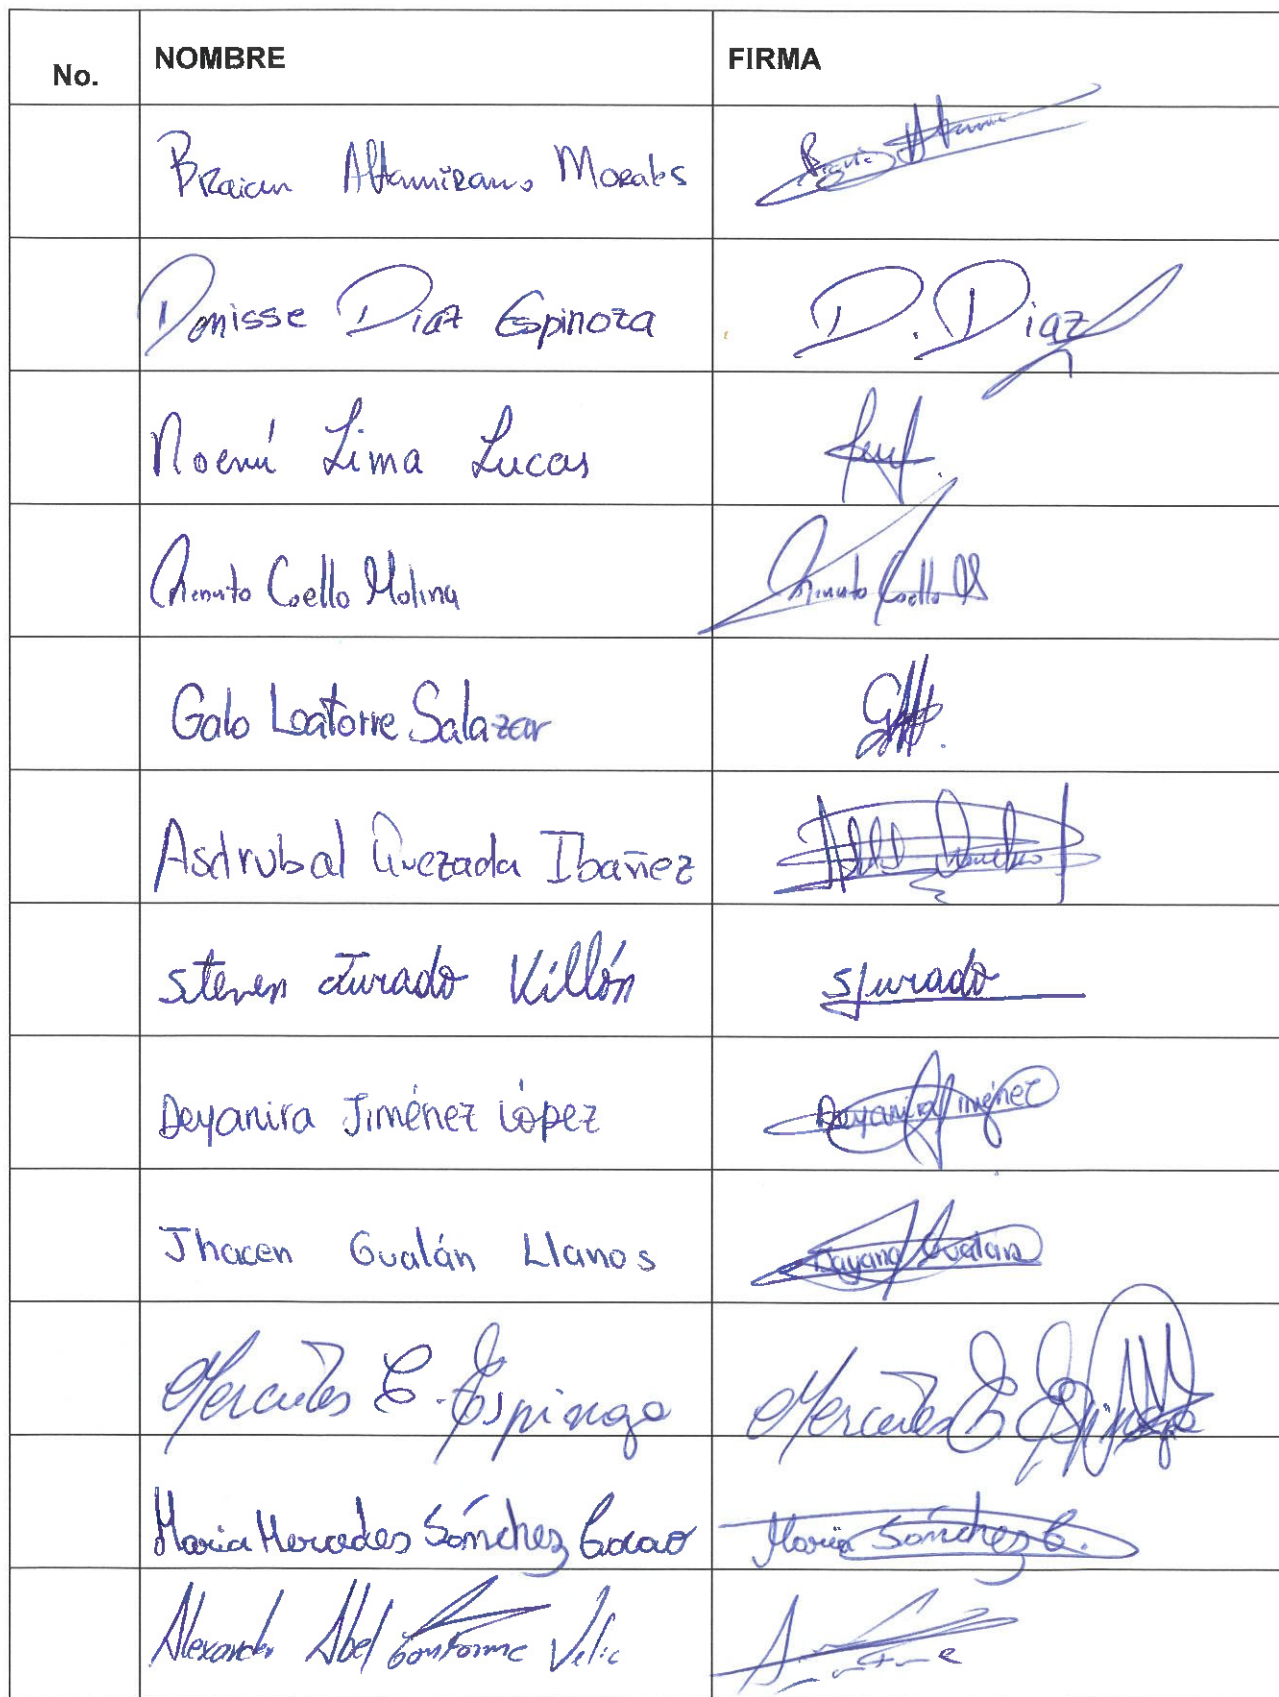 No. NOMBRE FIRMA
Braian Altamirano Morales
Denisse Diaz Espinoza D. Diaz
Noemí Lima Lucas
Coello Molina Coello M
Galo Loatorre Salazar
Asdrubal Quezada Ibañez
Steven Jurado Villón SJurado
Deyanira Jiménez López Deyanira Jiménez
Jhacen Gualán Llanos Dayana Gualán
Mercedes E. Espinoza Mercedes E. Espinoza
Maria Mercedes Sánchez Cacao Maria Sánchez C.
Alexander Abel Conforme Veliz